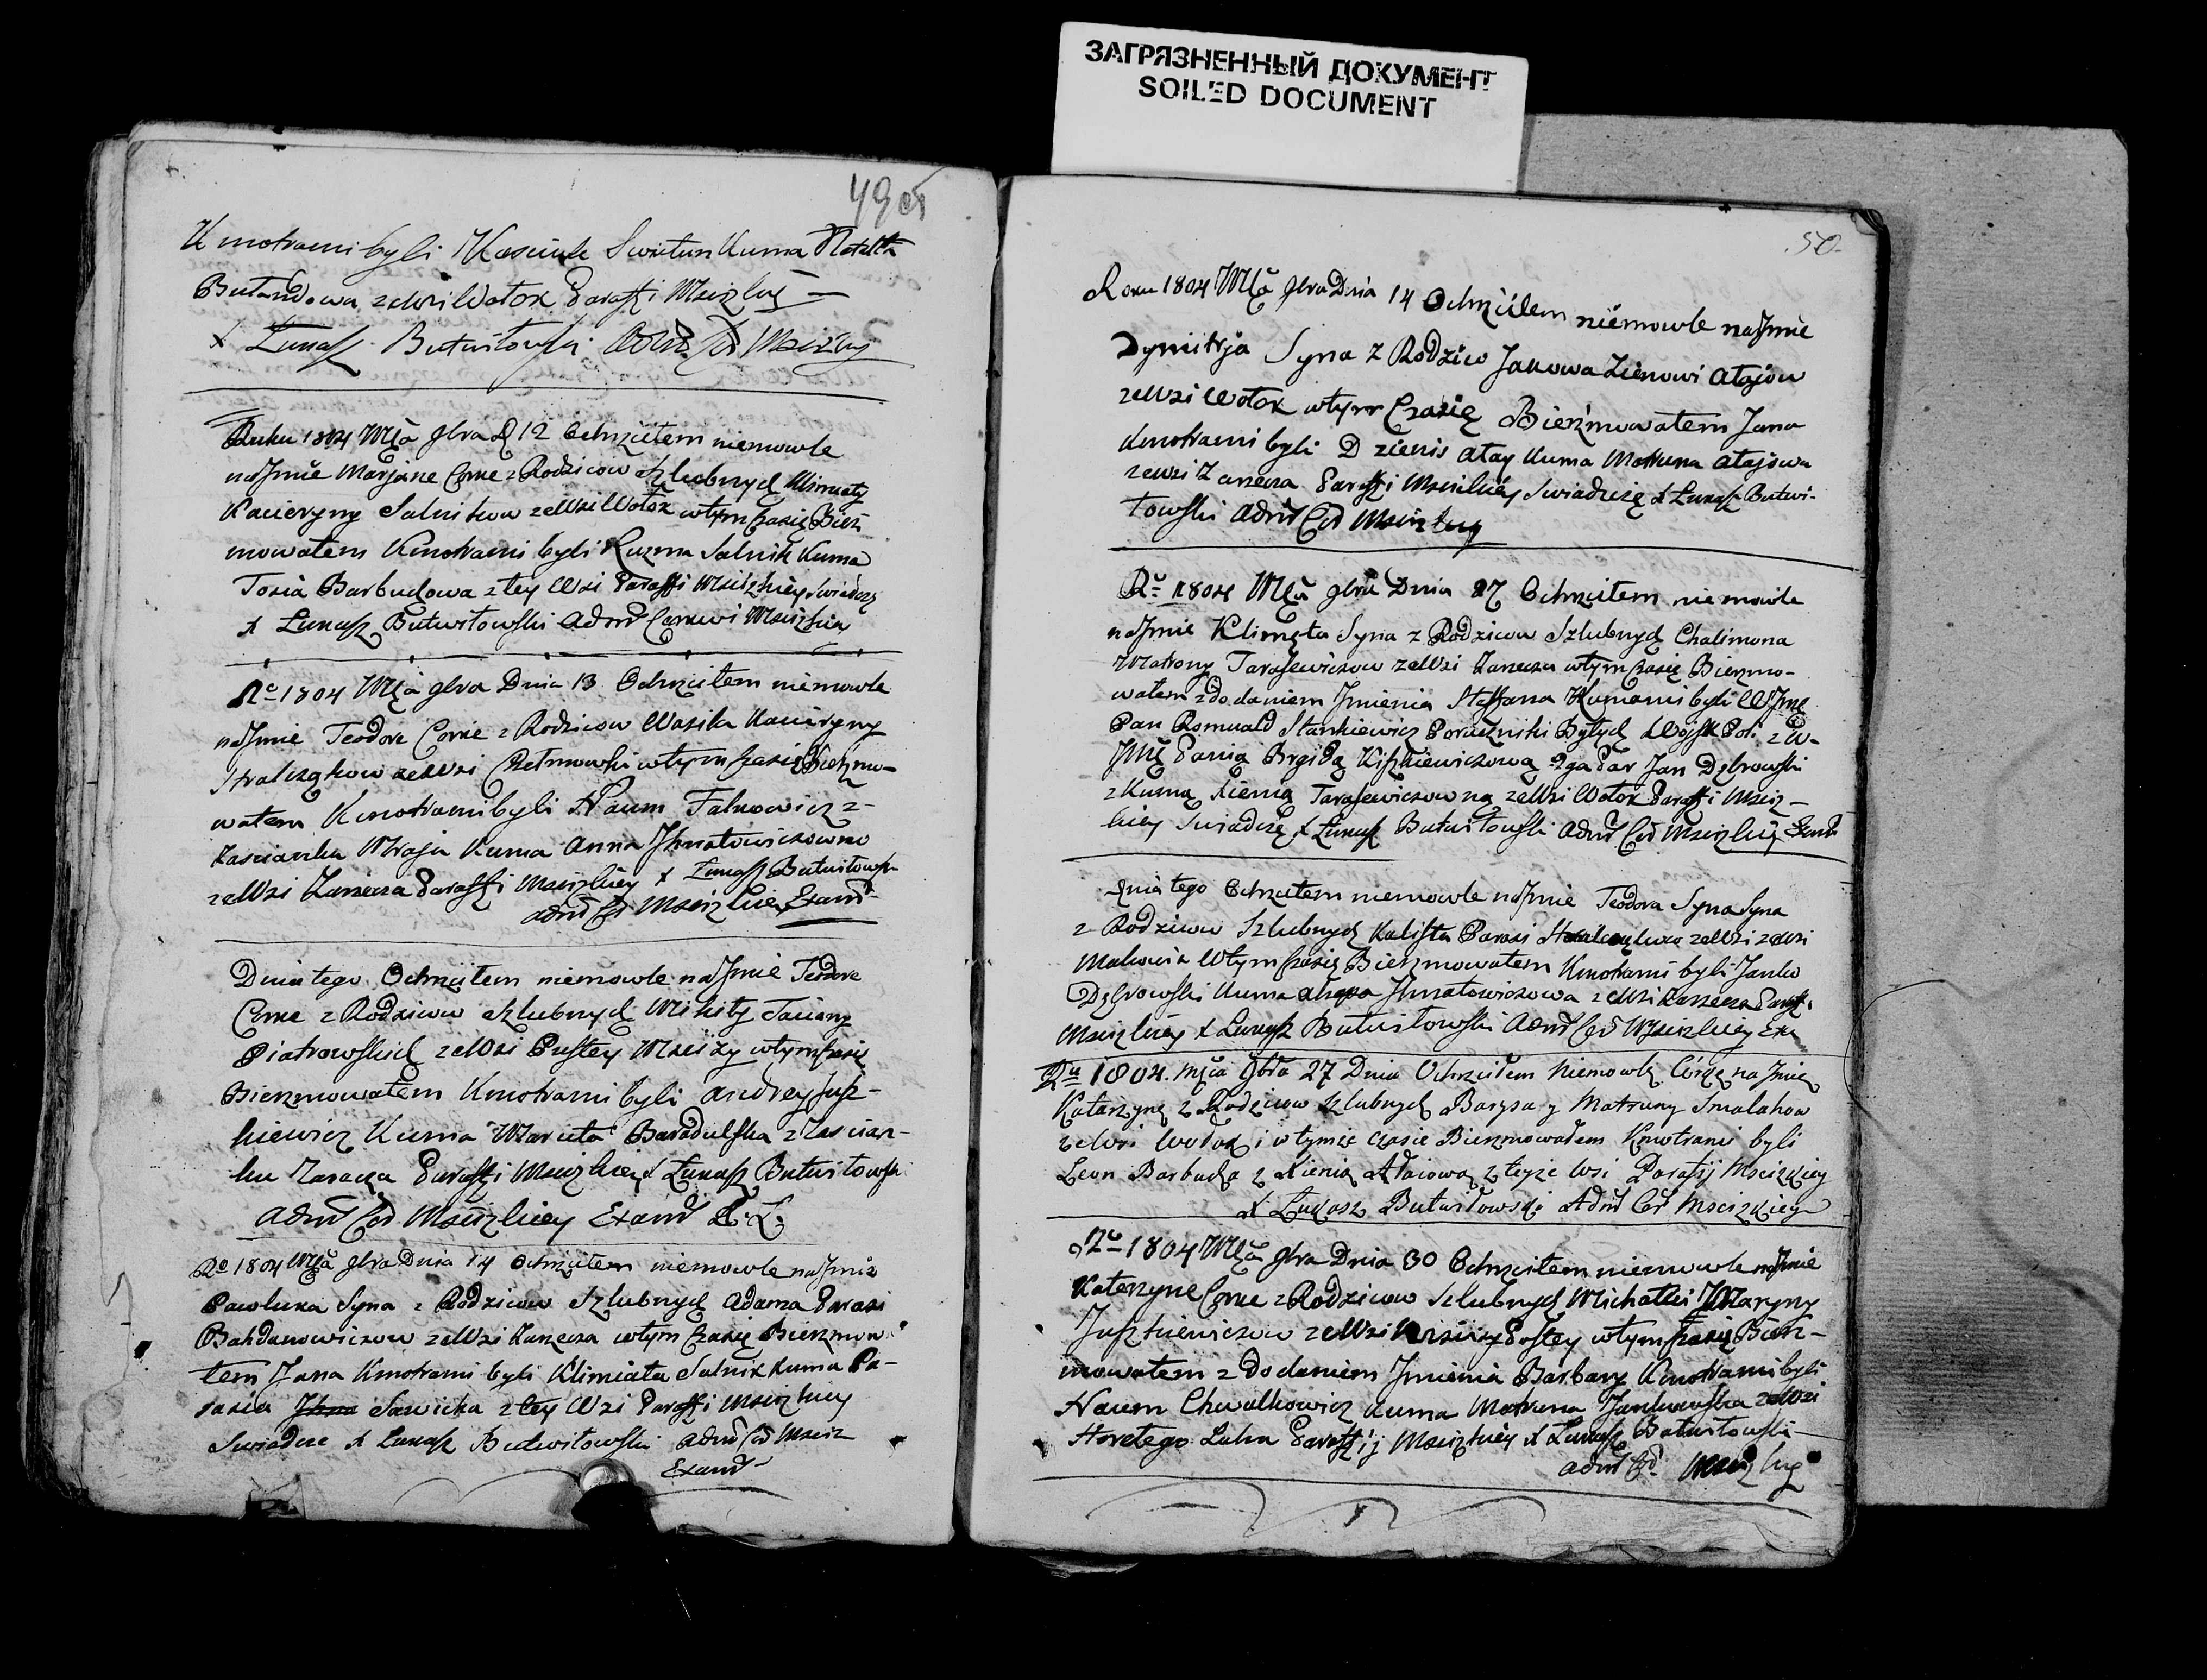 ЗАГРЯЗНЕННЫЙ ДОКУМЕНТ
SOILED DOCUMENT
49об
Kmotrami byli Swetun Kuma
zewsi Wołok Paraffi
X Łukasz Butwiłowski
Roku 1804 Mca 9bra D 12 Ochrzciłem niemowle
na Jmie Marjane Corke z Rodzicow Szlubnych Klimaty
Kacieryny Salnikow zewsi Wołok wtym Czasie Bierz
mowałem Kmotrami byli Kuzma Salnik Kuma
Barbudowa z tey Wsi Paraffi Mscizkiey Swiadcze
X Łukasz Butwiłowski Adm Cerkwi Mscizkiey
Ro 1804 Mca 9bra Dnia 13 Ochrzciłem niemowle
na Jmie Teodore Corke z Rodzicow Wasila Kacieryny
zewsi wtym Czasie Bierzmo-
wałem Kmotrami byli Naum Falkowicz z
Kuma Anna Jhnatowiczowna
zewsi Zarzecza Paraffi Mscizkiey X Łukasz Butwiłowski
Adm Cer Mscizkiey Exam
Dnia tego Ochrzciłem niemowle na Jmie Teodore
Corke z Rodzicow Szlubnych Mikity Taciany
Piotrowskich zewsi Pustey Mscizy wtym Czasie
Bierzmowałem Kmotrami byli Andrey Jusz-
kiewicz Kuma Maruta Baradulska z Zascian-
ku Paraffi Mscizkiey X Łukasz Butwiłowski
Adm Cer Mscizkiey Exam
Ro 1804 Mca 9bra Dnia 14 Ochrzciłem niemowle na Jmie
Pawluka Syna z Rodzicow Szlubnych Adama Parasi
Bahdanowiczow zewsi Zarzecza wtym Czasie Bierzmow
łem Jana Kmotrami byli Klimiata Salnik Kuma Pa-
rasia Sawicka z tey Wsi Paraffi Mscizkiey
Swiadcze X Łukasz Butwiłowski Adm Cer Msciz
Exam
50
Roku 1804 Mca 9bra Dnia 14 Ochrzciłem niemowle na Jmie
Dymitrja Syna z Rodzico Jakowa Zienowi Atajow
zewsi Wołok wtym Czasie Bierzmowałem Jana
Kmotrami byli Dzienis Atay Kuma Matruna Atajowa
zewsi Zarzecza Paraffi Mscizkiey Swiadcze X Łukasz Butwi-
łowski Adm Cer Mscizkiey
Ro 1804 Mca 9bra Dnia 27 Ochrzciłem niemowle
na Jmie Klimęta Syna z Rodzicow Szlubnych Chalimona
Matrony Tarasewiczow zewsi Zarzecza wtym Czasie Bierzmo-
wałem z dodaniem Jmienia Steffana Kumami byli WJmc
Pan Romuald Stankiewicz Porucznik Byłych Woysk Pol: z W-
Jmc Panią Brygidą Kiszkiewiczową 2ga Par Jan Dąbrowski
z Kumą Xienią Tarasewiczowną zewsi Wołok Paraffi Msciz-
kiey Swiadcze X Łukasz Butwiłowski Adm Cer Mscizkiey Exam
Dnia tego Ochrzciłem niemowle na Jmie Teodora Syna Syna
z Rodzicow Szlubnych Kalista Parasi zewsi zewsi
wtym Czasie Bierzmowałem Kmotrami byli Janko
Dąbrowski Kuma Jhnatowiczowa zewsi Zarzecza Paraff:
Mscizkiey X Łukasz Butwiłowski Adm Cer Mscizkiey Exa
Ru 1804. Mca 9bra 27 Dnia Ochrzciłem Niemowlę Córkę na Jmie
Katarzynę z Rodzicow Szlubnych Barysa y Matruny Smalakow
zewsi Wołok i wtymże czasie Bierzmowałem Kmotrami byli
Leon Barbuda z Xienią Ataiową z teyże wsi Parafij Mscizkiey
X Łukasz Butwiłowski Adm Cer Mscizkiey
Ro 1804 Mca 9bra Dnia 30 Ochrzciłem niemowle na Jmie
Katerzyne Corke z Rodzicow Szlubnych Michałki Maryny
Juszkiewiczow zewsi Mscizy Pustey wtym Czasie Bierz-
mowałem z dodaniem Jmienia Barbary Kmotrami byli
Naum Chwalkowicz Kuma Matruna Jankowska zewsi
Horełego Luha Paraffij Mscizkiey X Łukasz Butwiłowski
Adm Cer Mscizkiey